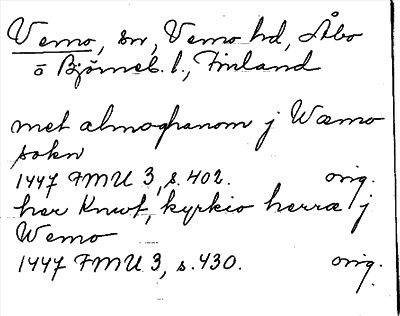 Vemo, sn, Vemo hd, Åbo
o Björneb. l., Finland
met almoghanom j Wæmo
sokn
1447 FMU 3, s. 402. orig.
her Knwt, kyrkio herræ j
Wemo
1447 FMU 3, s. 430. orig.